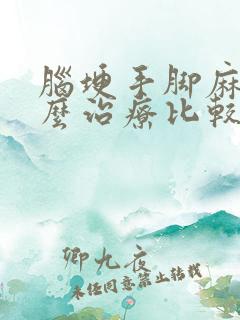 腦埂手脚麻
麽治療比較
卿九夜
未经同意禁止转载